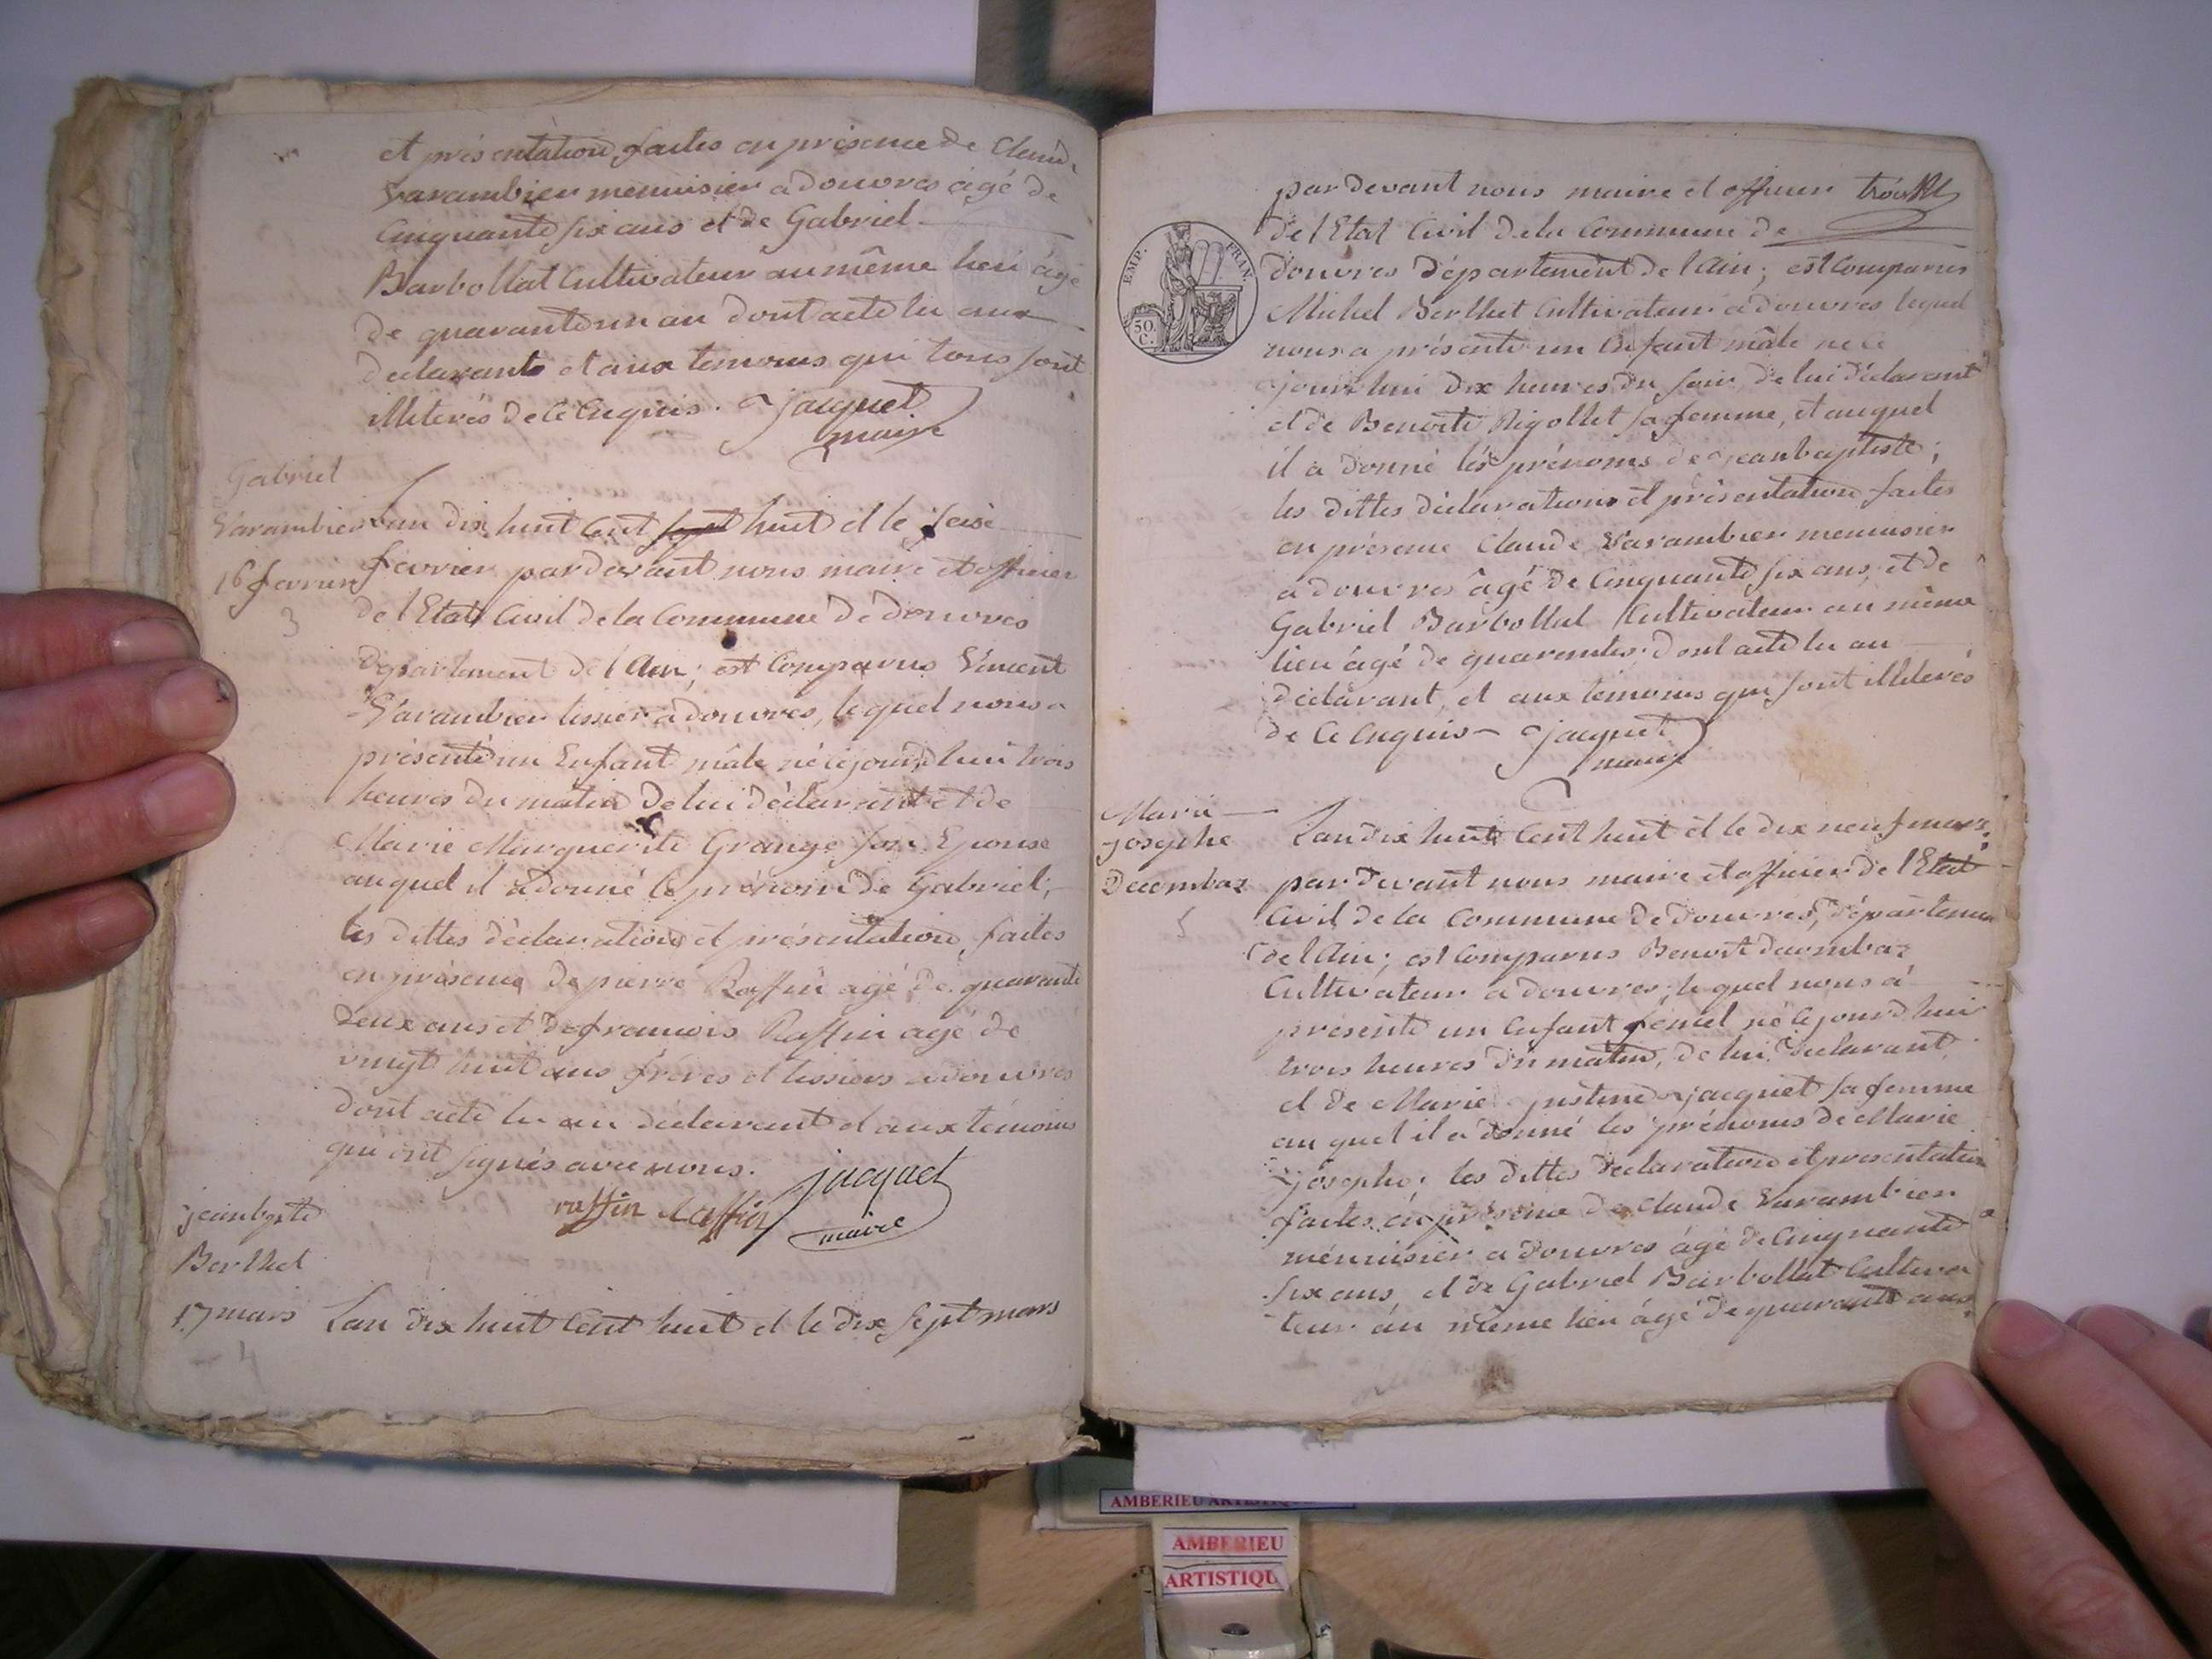 et présentation faites en présence de Claude
Varambier menuisier a douvres agé de
Cinquante six ans et de Gabriel
Barbollat Cultivateur au même lieu agé
de quarante un an dont acte lu aux
declarants et aux temoins qui tous sont
illiterés de ce Enquis. jacquet
maire
Gabriel
Varambier
16 fevrier
3
Lan dix huit Cent sept huit et le seise
fevrier par devant nous maire et officier
de l'Etat Civil de la Commune de douvres
departement de l'Ain; est Comparus Vincent
Varambier tissier a douvres, le quel nous a
présenté un Enfant mâle né cejourdhui trois
heures du matin de lui déclarant et de
Marie Marguerite Grange son Epouse
auquel il a donné le prénom de Gabriel;
les dittes déclaration et présentation faites
en présence de pierre Raffin agé de quarante
deux ans et de francois Raffin agé de
vingt huit ans fréres et tissiers a douvres
dont acte lu au déclarant et aux témoins
qui ont signés avec nous.
raffin Raffin jacquet
maire
jeanbpte
Berthet
17 mars
4
Lan dix huit Cent huit et le dix sept mars
par devant nous maire et officier
de l'Etat Civil de la Commune de
douvres département de l'Ain; est Comparus
Michel Berthet Cultivateur a douvres lequel
nous a présenté un Enfant mâle né ce
jourdhui dix heures du soir, de lui déclarant
et de Benoite Rigollet sa femme, et auquel
il a donné les prénoms de jeanbaptiste;
les dittes déclarations et présentation faites
en présence Claude Varambier menuisier
a douvres âgé de Cinquante six ans, et de
Gabriel Barbollat Cultivateur au même
lieu âgé de quarante; dont acte lu au
déclarant, et aux témoins qui sont illiterés
de ce Enquis jacquet
maire
EMP. FRAN.
50.
C.
Marie
josephe
Decombaz
5
Lan dix huit Cent huit et le dix neuf mars
par devant nous maire et officier de l'Etat
Civil de la Commune de douvres, département
de l'Ain; est Comparus Benoit decombaz
Cultivateur a douvres, le quel nous a
présenté un Enfant femel né cejourdhui
trois heures du matin, de lui déclarant,
et de Marie justine jacquet sa femme
au quel il a donné les prénoms de Marie
josephe; les dittes déclaration et présentation
faites en présence de Claude Varambier
menuisier a douvres âgé de Cinquante
six ans, et de Gabriel Barbollat Cultiva
teur au même lieu âgé de quarante ans
AMBERIEU
AMBERIEU
ARTISTIQU